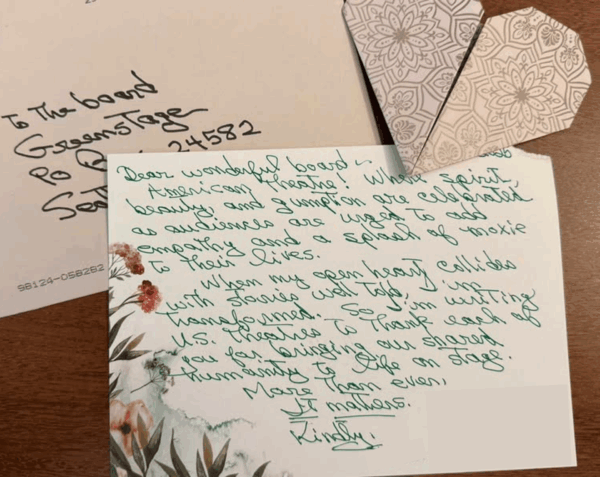 To The board
GreensTage
PO 24582
98124-058282
Dear wonderful board ~
American Theatre! Where spirit,
beauty, and gumption are celebrated
as audiences are urged to add
empathy and a splash of moxie
to their lives.
When my open heart collides
with stories well told, I'm
transformed. So, I'm writing
U.S. Theatres to thank each of
you for bringing our shared
humanity to life on stage.
More than ever,
It matters.
Kindly,